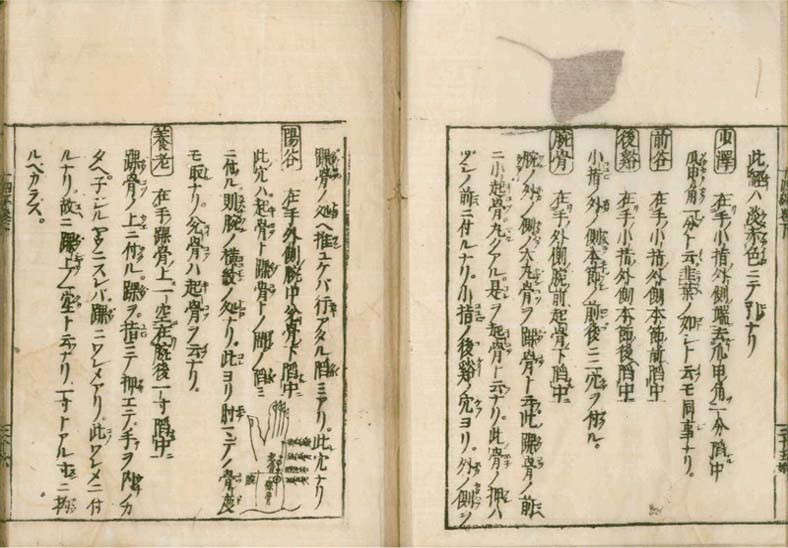 此經ハ淡赤色ニテヲナリ
少澤 在手小指外側端去爪甲角一分䧟中
爪甲角一分ト云韭葉ノ如シト云モ同事ナリ。
前谷 在手小指外側本節前䧟中
後谿 在手小指外側本節後䧟中
小指ノ外ノ側本節ノ前後ニ二穴ヲ付ル。
腕骨 在手外側腕前起骨下䧟中
腕ノ外ノ側ノ大丸骨ヲ踝骨ト云此踝骨ノ前
ニ小起骨丸クアル。是ヲ起骨ト云ナリ。此骨ノ押ハ
ヅシノ前ニ付ルナリ。小指ノ後谿ノ穴ヨリ。外ノ側ヲ
踝骨ノ処ヘ推ユケバ行アタル䧟ミアリ。此穴ナリ
陽谷 在手外側腕中兌骨下䧟中
此穴ハ起骨ト踝骨トノ間ノ䧟ミ
ニ付ル則腕ノ横紋ノ処ナリ。此ヨリ肘マデノ骨度
モ取ナリ。兌骨ハ起骨ヲ云ナリ。
養老 在手踝骨上一空在腕後一寸䧟中
踝骨ノ上ニ付ル。踝ヲ。指ニテ押エテ。手ヲ
ルナリ。故ニ踝上ノ一空ト云ナリ。一寸トアル寸ニ拘
ルベカラズ。